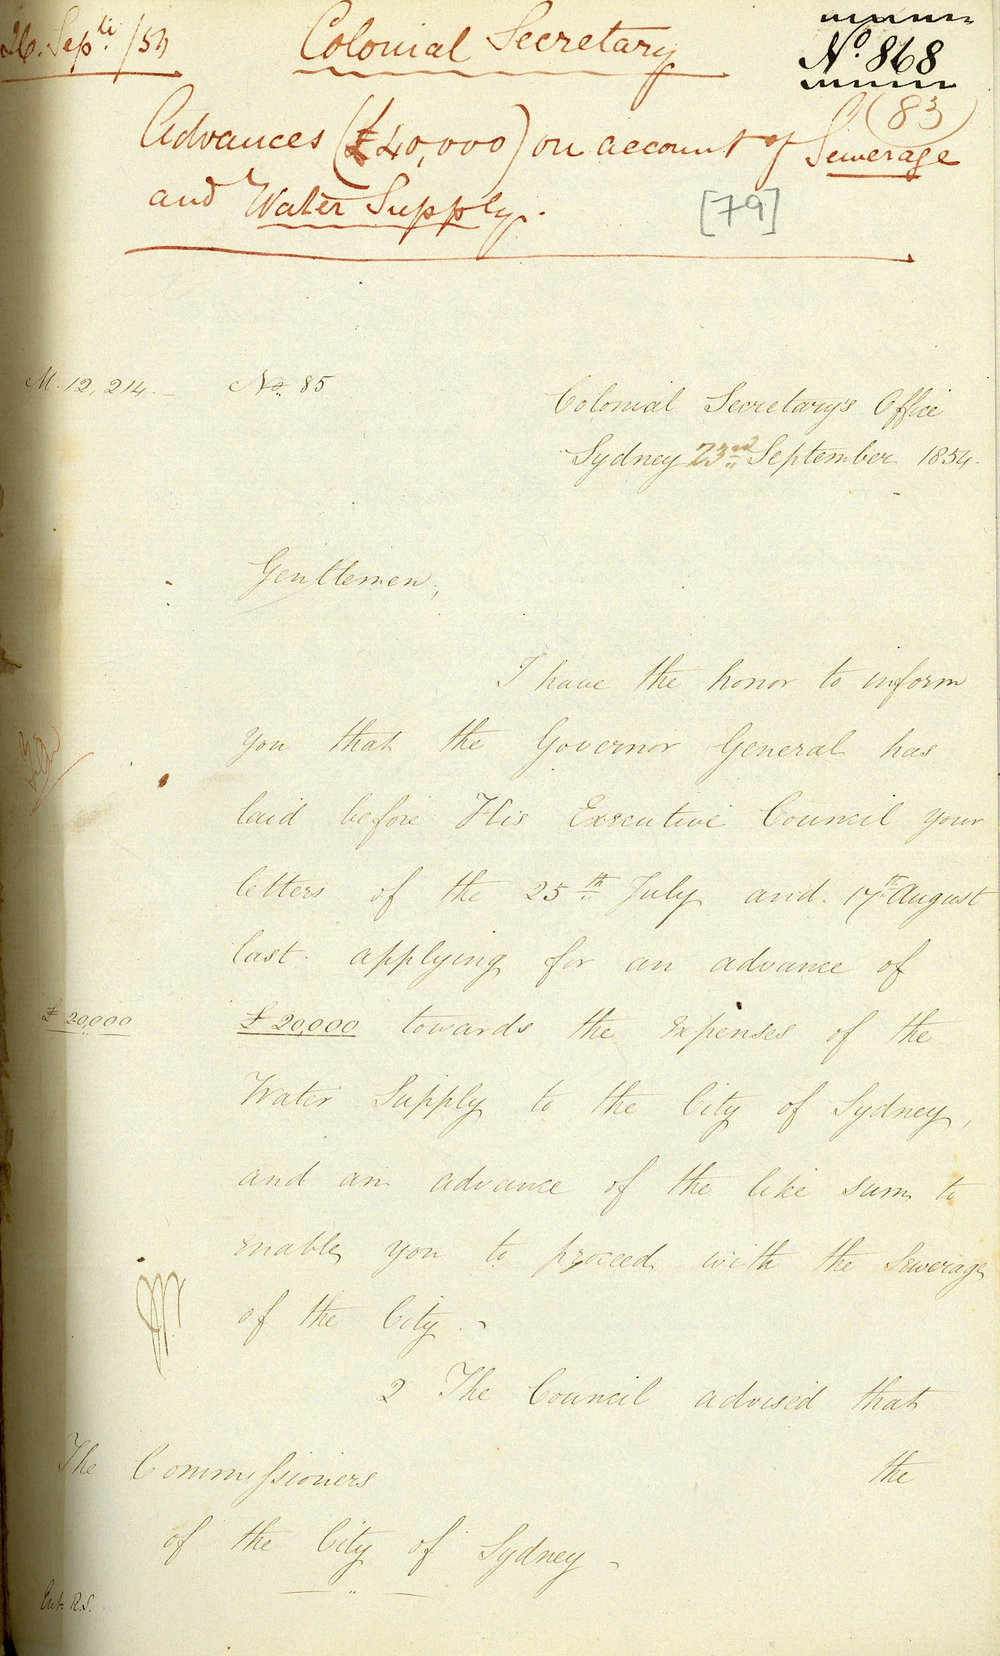 26. Septr /54
Colonial Secretary
No. 868
(83)
Advances (£40,000) on account of Sewerage
and Water Supply.
[79]
M. 12,214.
No. 85
Colonial Secretary's Office
Sydney 23rd September 1854.
Gentlemen,
I have the honor to inform
you that the Governor General has
laid before His Executive Council your
letters of the 25th July and 17th August
last applying for an advance of
£20,000
£20,000 towards the expenses of the
Water Supply to the City of Sydney,
and an advance of the like sum to
enable you to proceed with the Sewerage
of the City.
2 The Council advised that
the
The Commissioners
of the City of Sydney
Ent. R.S.